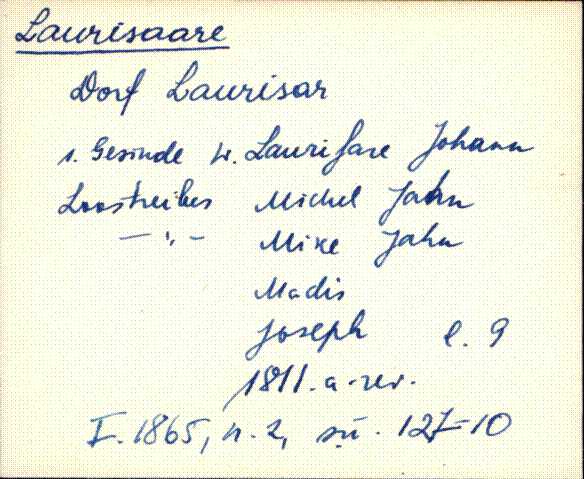 Laurisaare
Dorf Laurisar
1. Gesinde W. Laurisare Johann
Loostreiber Michel Jahn
— " — Mike Jahn
Madis
Joseph l. 9
1811. a. rev.
I. 1865, n. 2, sü. 127-10